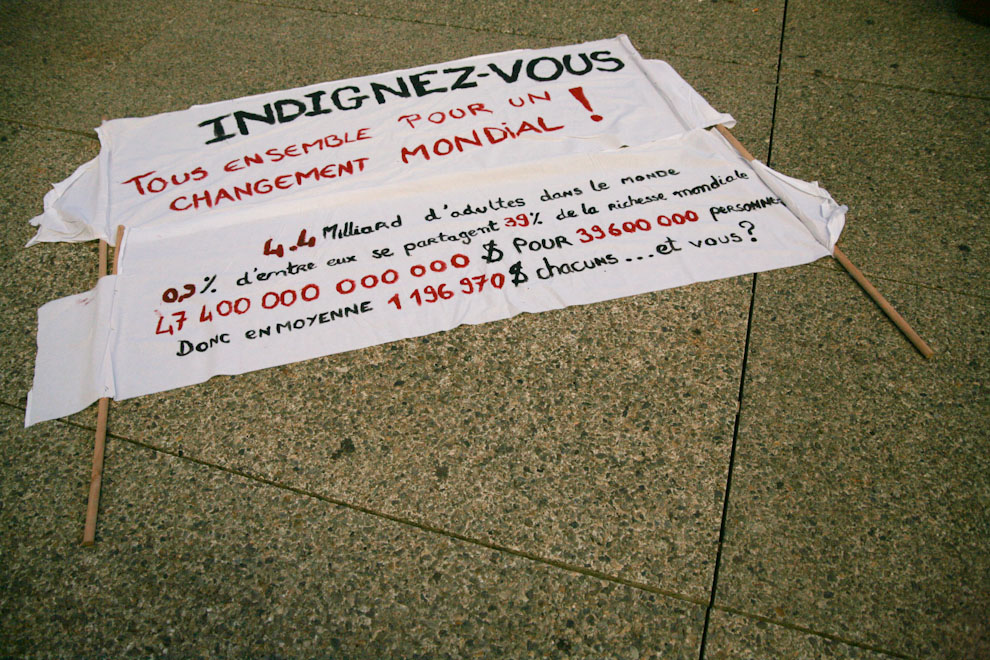 INDIGNEZ-VOUS
TOUS ENSEMBLE POUR UN
CHANGEMENT MONDIAL !
4.4 Milliard d'adultes dans le monde
0,9% d'entre eux se partagent 39% de la richesse mondiale
47 400 000 000 000 $ POUR 39600 000 PERSONNES
DONC EN MOYENNE 1 196 970 $ chacuns ... et vous?